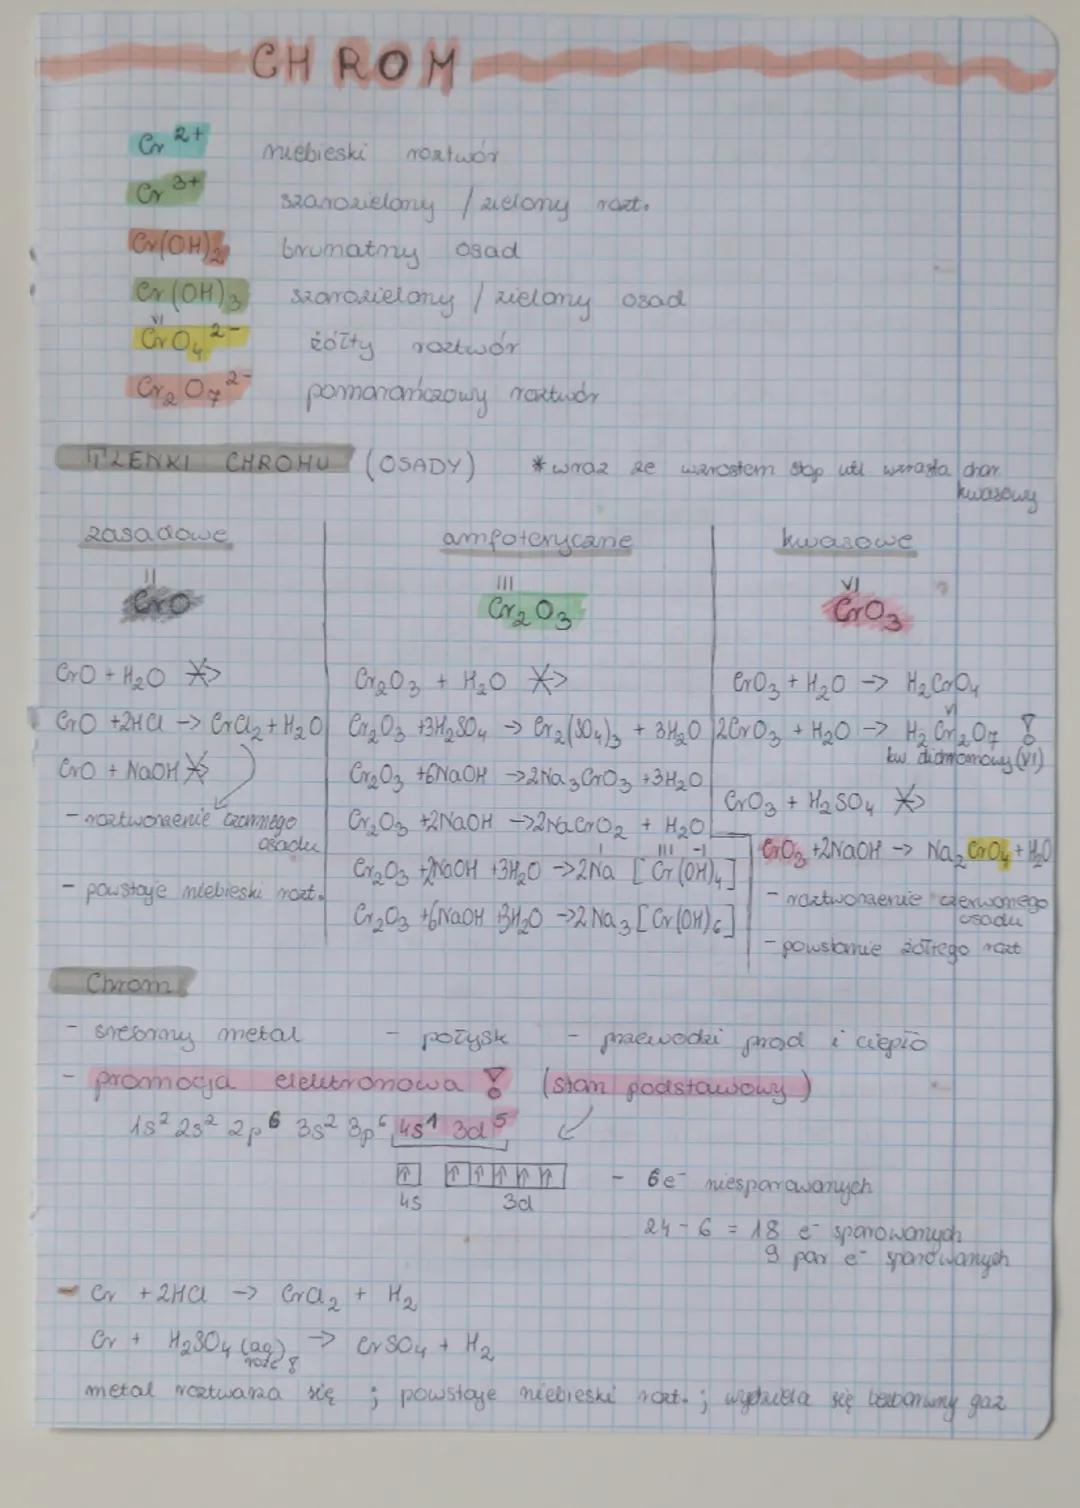 CHROM
Cr²⁺ niebieski roztwór
Cr³⁺ szarozielony / zielony rozt.
Cr(OH)₂ brunatny osad
Cr(OH)₃ szarozielony / zielony osad
VI
CrO₄²⁻ żółty roztwór
Cr₂O₇²⁻ pomarańczowy roztwór
TLENKI CHROMU (OSADY) * wraz ze wzrostem stop utl wzrasta char
kwasowy
zasadowe amfoteryczne kwasowe
II III VI
CrO Cr₂O₃ CrO₃
CrO + H₂O ↛
CrO + 2HCl → CrCl₂ + H₂O
CrO + NaOH ↛
- roztworzenie czarnego
osadu
- powstaje niebieski rozt.
Cr₂O₃ + H₂O ↛
Cr₂O₃ + 3H₂SO₄ → Cr₂(SO₄)₃ + 3H₂O
Cr₂O₃ + 6NaOH → 2Na₃CrO₃ + 3H₂O
Cr₂O₃ + 2NaOH → 2NaCrO₂ + H₂O
I III -I
Cr₂O₃ + 2NaOH + 3H₂O → 2Na[Cr(OH)₄]
Cr₂O₃ + 6NaOH 3H₂O → 2Na₃[Cr(OH)₆]
CrO₃ + H₂O → H₂CrO₄
VI
2CrO₃ + H₂O → H₂Cr₂O₇ !
kw dichromowy (VI)
CrO₃ + H₂SO₄ ↛
CrO₃ + 2NaOH → Na₂CrO₄ + H₂O
- roztworzenie czerwonego
osadu
- powstanie żółtego rozt
Chrom
- srebrny metal - połysk - przewodzi prąd i ciepło
- promocja elektronowa ! (stan podstawowy)
1s² 2s² 2p⁶ 3s² 3p⁶ 4s¹ 3d⁵
↑ ↑↑↑↑↑ - 6e⁻ niesparowanych
4s 3d
24 - 6 = 18 e⁻ sparowanych
9 par e⁻ sparowanych
- Cr + 2HCl → CrCl₂ + H₂
Cr + H₂SO₄ (aq) → CrSO₄ + H₂
rozc !
metal roztwarza się ; powstaje niebieski rozt. ; wydziela się bezbarwny gaz